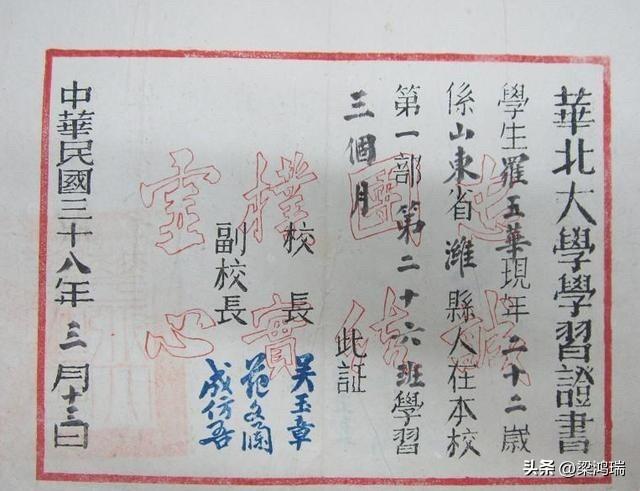 華北大學學習證書
學生羅玉華現年二十二歲
係山東省濰縣人在本校
第一部第二十六班學習
三個月 此証
校長 吳玉章
副校長 范文瀾
成仿吾
中華民國三十八年三月十三日
忠誠
團結
樸實
虛心
头条 @梁鸿瑞